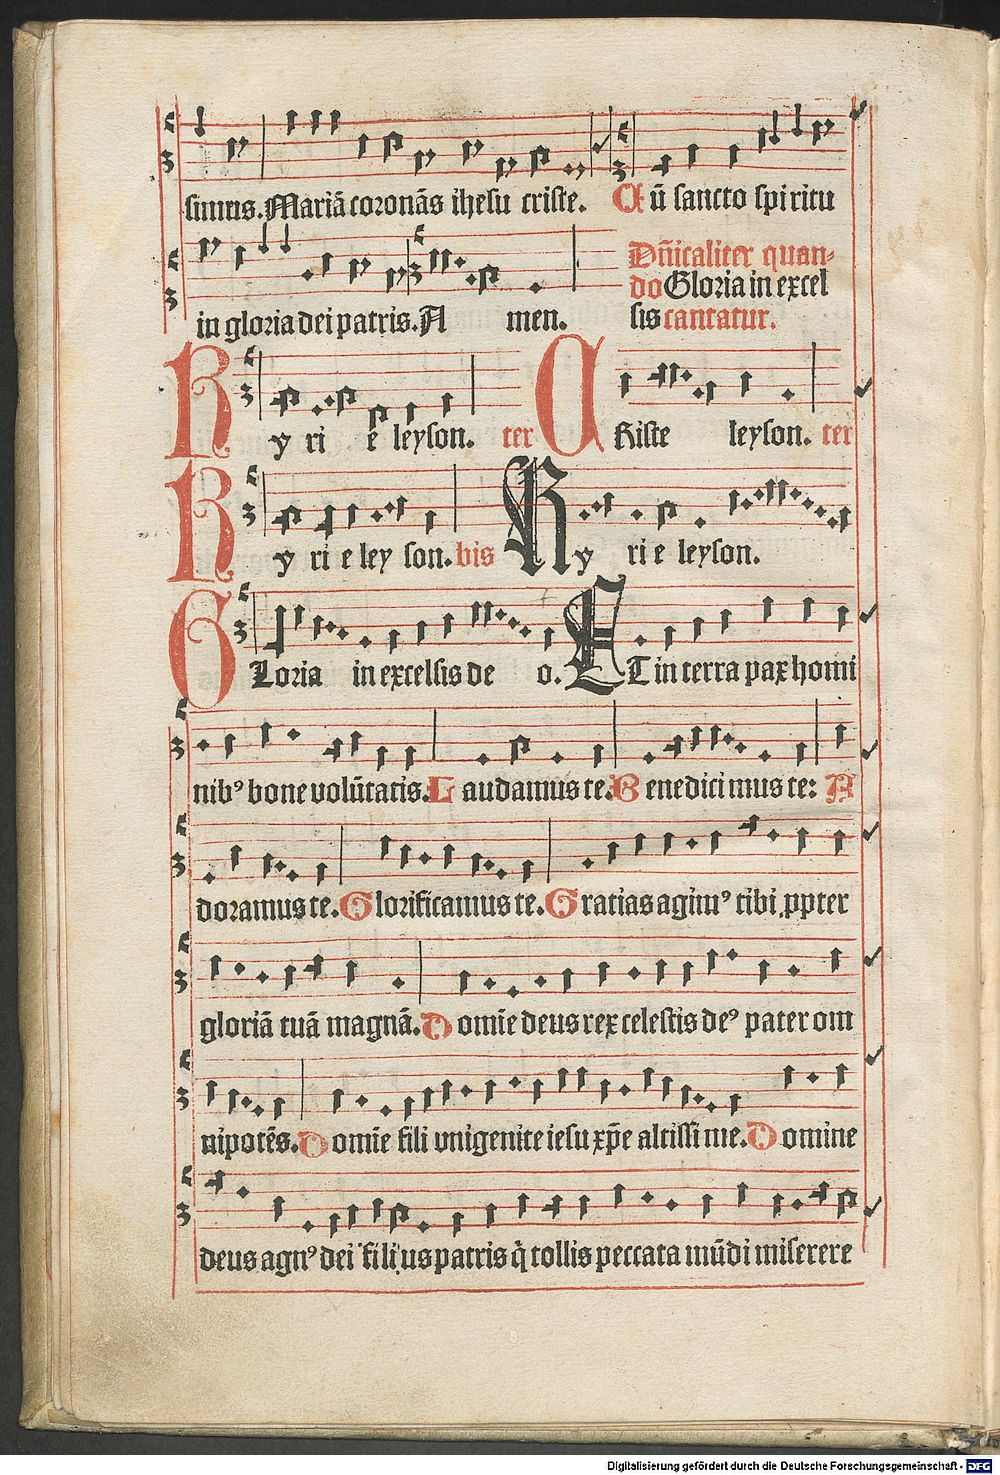 simus. Mariā coronās ihesu criste. Cū sancto spiritu
in gloria dei patris. A men.
Dn̄icaliter quan-
do Gloria in excel
sis cantatur.
Ky ri e leyson. ter Christe leyson. ter
Ky ri e ley son. bis Ky ri e leyson.
Gloria in excelsis de o. Et in terra pax homi
nibꝰ bone volūtatis. Laudamus te. Benedici mus te: A
doramus te. Glorificamus te. Gratias agimꝰ tibi ꝓpter
gloriā tuā magnā. Domīe deus rex celestis deꝰ pater om
nipotēs. Domīe fili vnigenite iesu xp̄e altissi me. Domine
deus agnꝰ dei fili us patris q̄ tollis peccata mūdi miserere
Digitalisierung gefördert durch die Deutsche Forschungsgemeinschaft - DFG